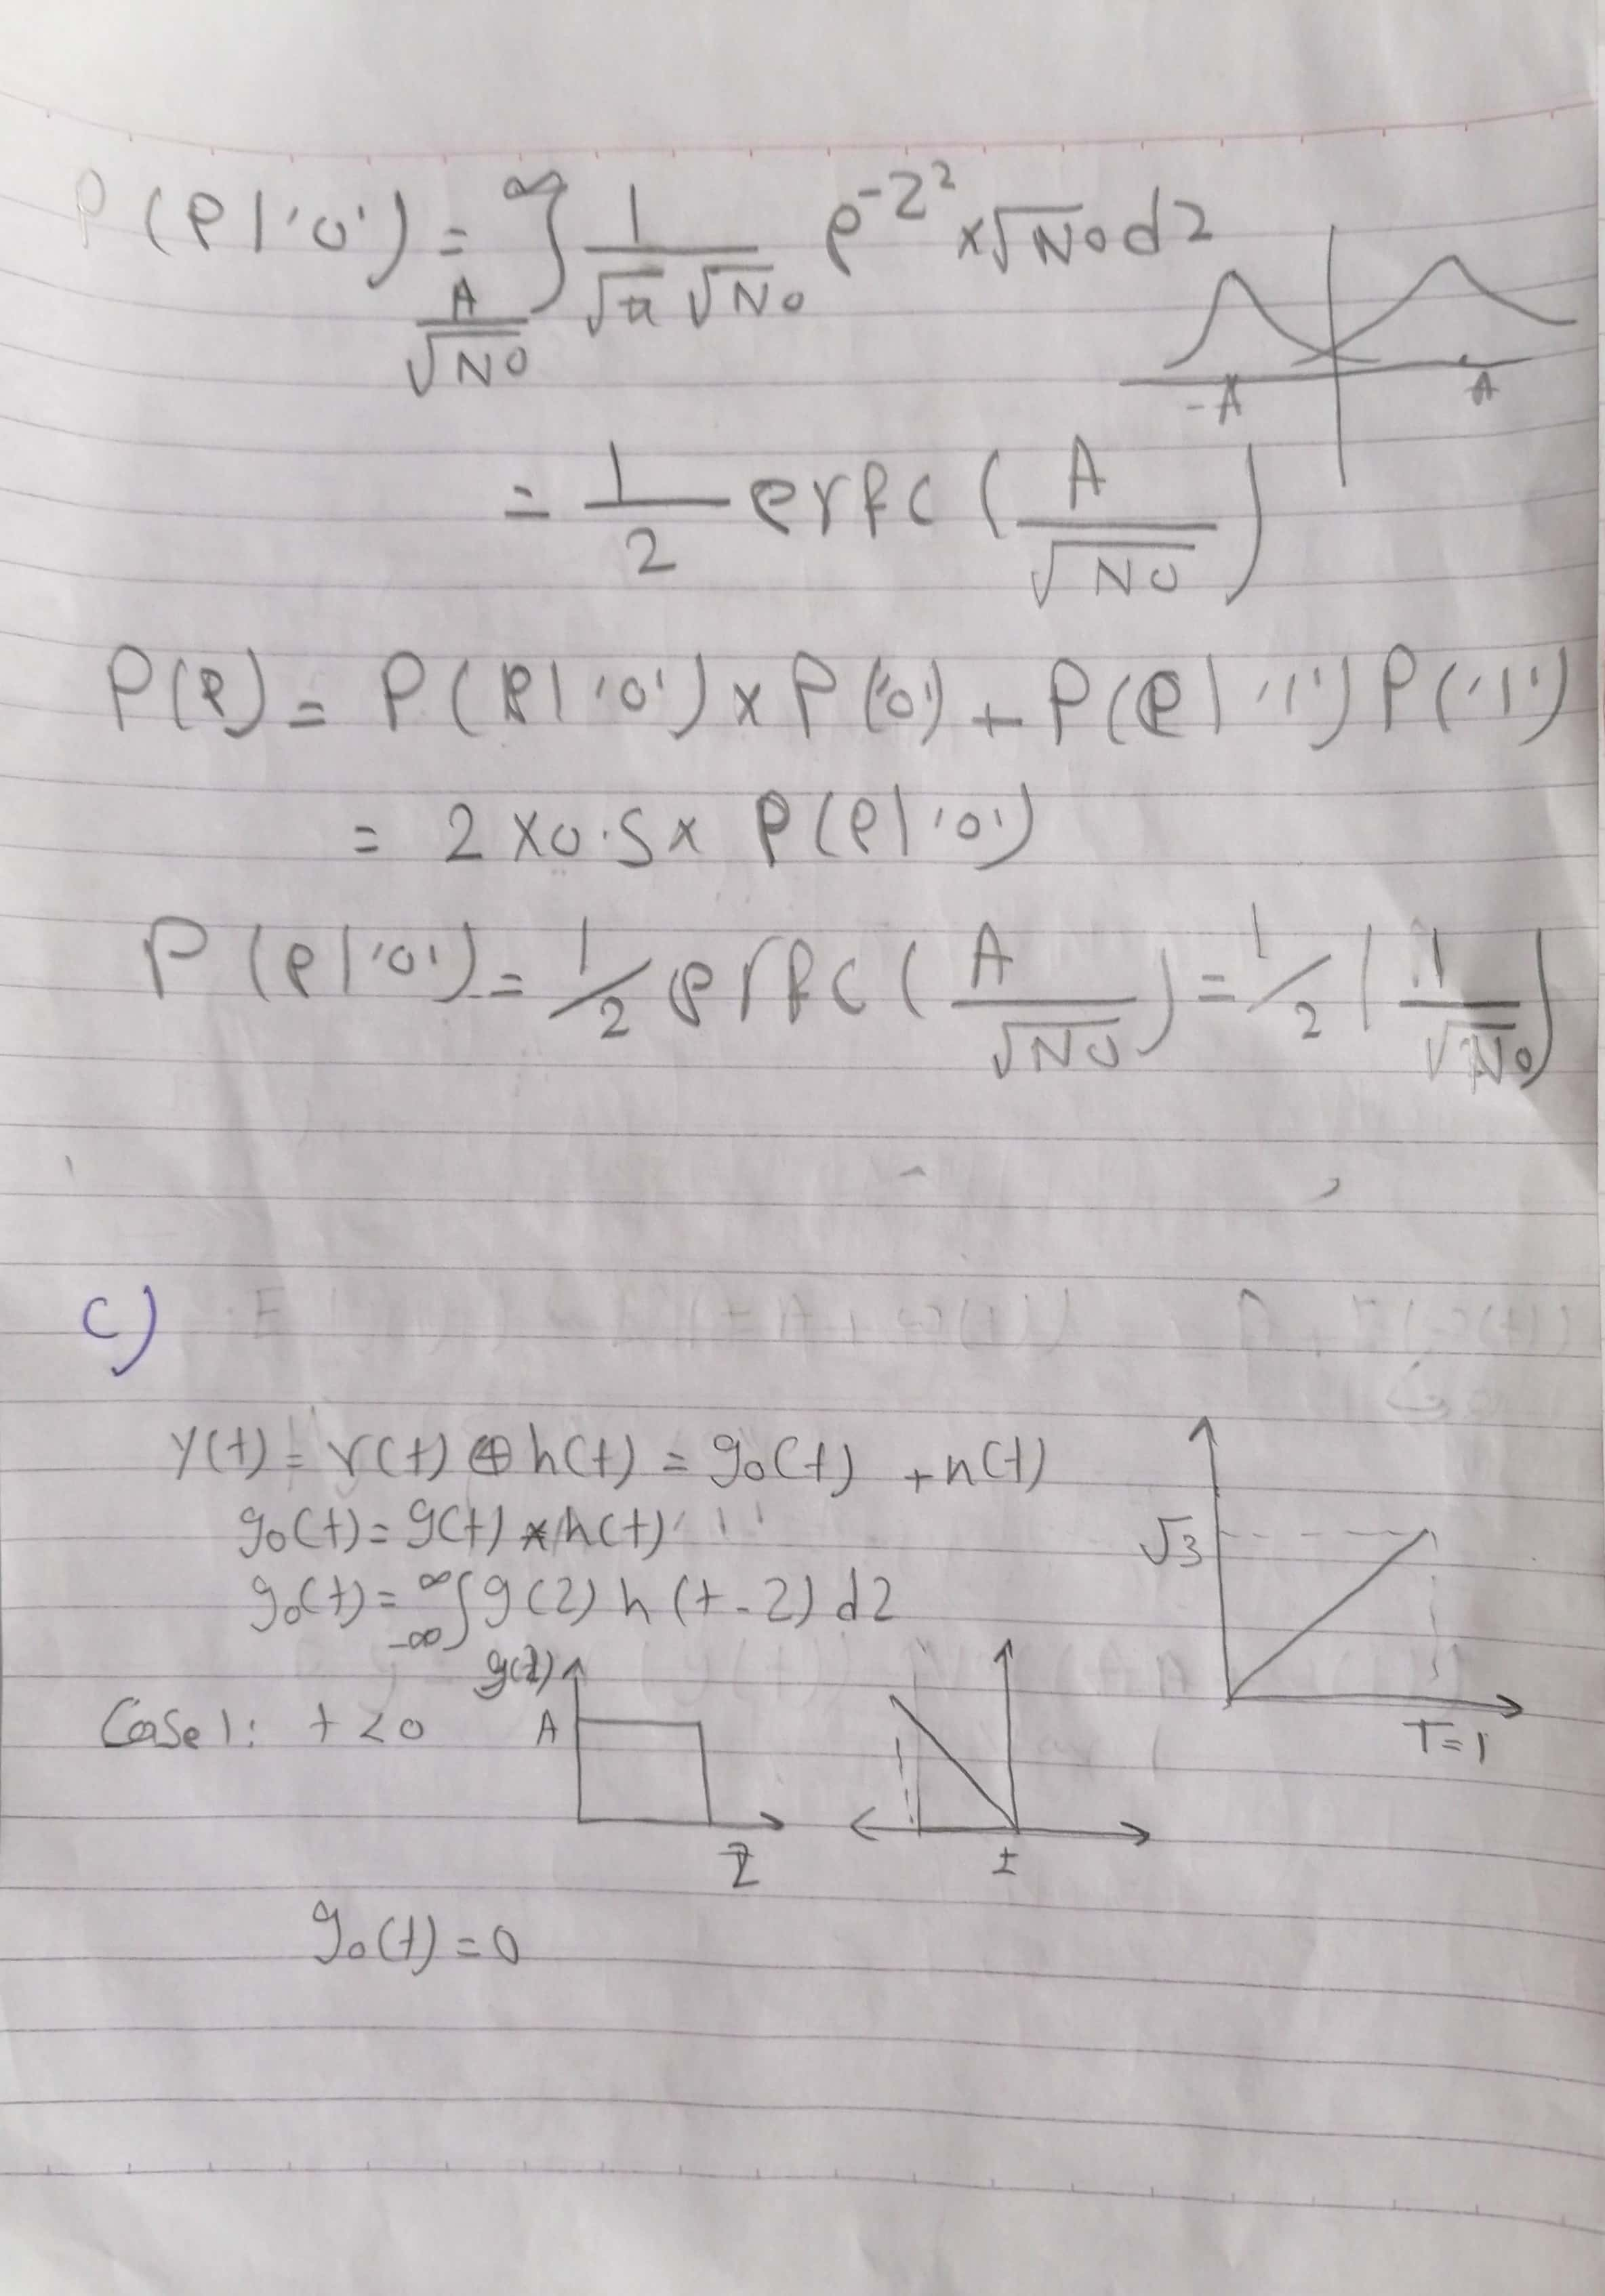 P(e|'0') = ∞∫A/√N0 1/√π√N0 e^-z² x√N0 dz
-A A
= 1/2 erfc(A/√N0)
P(e) = P(e|'0') x P('0') + P(e|'1') P('1')
= 2 x 0.5 x P(e|'0')
P(e|'0') = 1/2 erfc(A/√N0) = 1/2 (1/√N0)
C)
y(t) = r(t) ⊕ h(t) = g0(t) + n(t)
g0(t) = g(t) * h(t)
√3
g0(t) = ∞∫-∞ g(z) h(t-z) dz
g(z)
Case 1: t<0 A
T=1
z t
g0(t) = 0